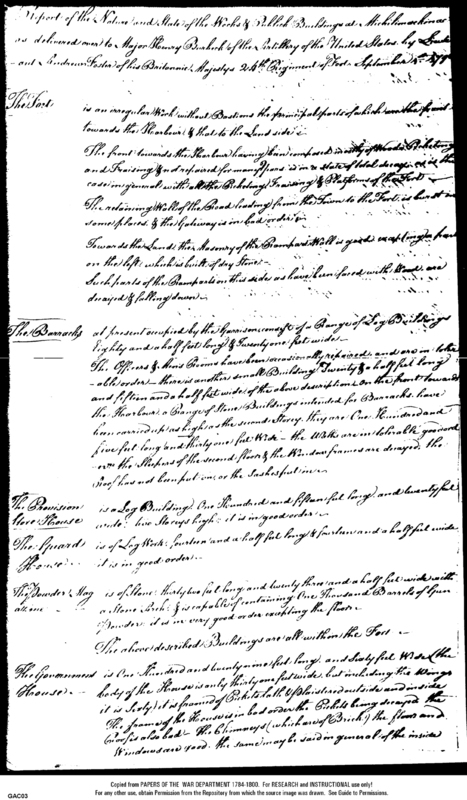 Report of the Nature and State of the Works & Publick Buildings at Michilimackinac
as delivered over to Major Henry Burbeck of the Artillery of the United States by Lieute
-ant Andrew Foster of his Britannic Majestys 24th Regiment of Foot September
The Fort
is an irregular Work without Bastions the principal parts of which are the front
towards the Harbour & that to the Land side
The front towards the Harbour having been composed of Wood Picketing
and Fraising & not repaired for many Years is in a state of total decay as is the
case in general with all the Picketing Fraising & Platforms of the Fort
The retaining Wall of the Road leading from the Town to the Fort is burst in
some places & the Gateway is in bad order
Towards the Land the Masonry of the Rampart Wall is good excepting a part
on the left which is built of dry Stone
Such parts of the Rampart on this side as have been faced with Wood are
decayed & falling down
The Barracks
at present occupied by the Garrison consist of a Range of Log Buildings
Eighty and a half feet long & Twenty one feet wide
The Officers & Mens Rooms have been occasionally repaired and are in toler
-able order there is another small Building Twenty & a half feet long
and fifteen and a half feet wide of the above description on the front towards
the Harbour a Range of Stone Buildings intended for Barracks have
been carried up as high as the second Storey they are One Hundred and
five feet long and thirty one feet Wide the Walls are in tolerable good ord
the Sleepers of the second floor & the Window frames are decayed the
Roof has not been put on or the Sashes put in
The Provision
Store House
is a Log Building One Hundred and fifteen feet long and twenty feet
wide two Storeys high it is in good order
The Guard
House
is of Log Work fourteen and a half feet long & fourteen and a half feet wide
it is in good order
The Powder Mag
azine
is of Stone thirty two feet long and twenty three and a half feet wide with
a Stone Arch & is capable of containing One Thousand Barrels of Gun
Powder it is in very good order excepting the floor
The above described Buildings are all within the Fort
The Government
House
is One Hundred and twenty nine feet long and Sixty feet Wide (the
body of the House is only thirty one feet wide but including the Wings
it is Sixty) it is framed of Pickets lath'd & plaistered outside and inside
The frame of the House is in bad order the Pickets being decayed the
Roof is also bad The Chimneys (which are of Brick) the floors and
Windows are good the same may be said in general of the inside
Copied from PAPERS OF THE WAR DEPARTMENT 1784-1800. For RESEARCH and INSTRUCTIONAL use only!
For any other use, obtain Permission from the Repository from which the source image was drawn. See Guide to Permissions.
GAC03